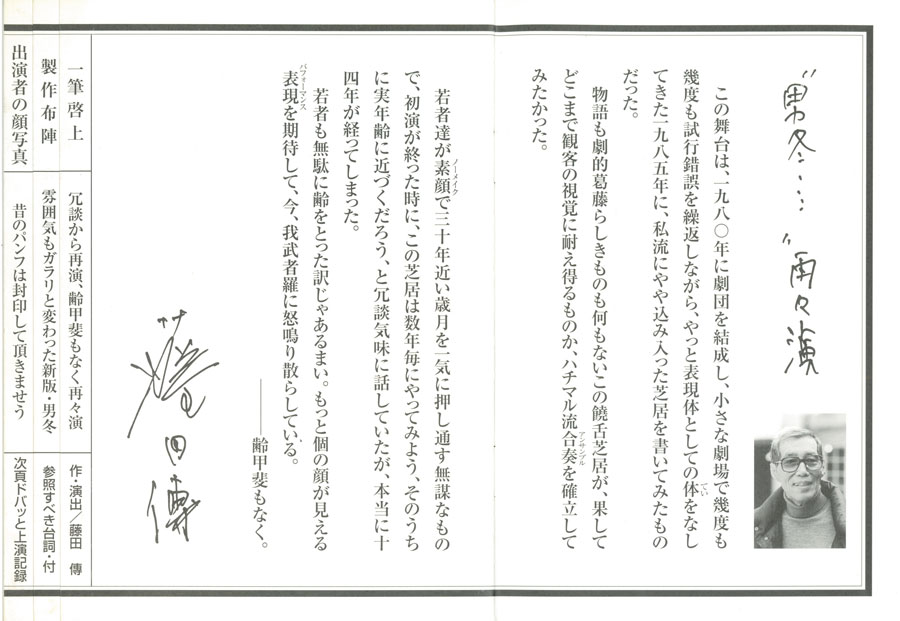 "男冬‥‥" 再々演
この舞台は、一九八〇年に劇団を結成し、小さな劇場で幾度も
幾度も試行錯誤を繰返しながら、やっと表現体としての体をなし
てい
てきた一九八五年に、私流にやや込み入った芝居を書いてみたもの
だった。
物語も劇的葛藤らしきものも何もないこの饒舌芝居が、果して
どこまで観客の視覚に耐え得るものか、ハチマル流合奏を確立して
アンサンブル
みたかった。
若者達が素顔で三十年近い歳月を一気に押し通す無謀なもの
ノーメイク
で、初演が終った時に、この芝居は数年毎にやってみよう、そのうち
に実年齢に近づくだろう、と冗談気味に話していたが、本当に十
四年が経ってしまった。
若者も無駄に齢をとった訳じゃあるまい。もっと個の顔が見える
表現を期待して、今、我武者羅に怒鳴り散らしている。
パフォーマンス
――齢甲斐もなく。
藤田傳
一筆啓上 冗談から再演、齢甲斐もなく再々演 作・演出/藤田 傳
製作布陣 雰囲気もガラリと変わった新版・男冬 参照すべき台詞・付
出演者の顔写真 昔のパンフは封印して頂きませう 次頁ドバッと上演記録